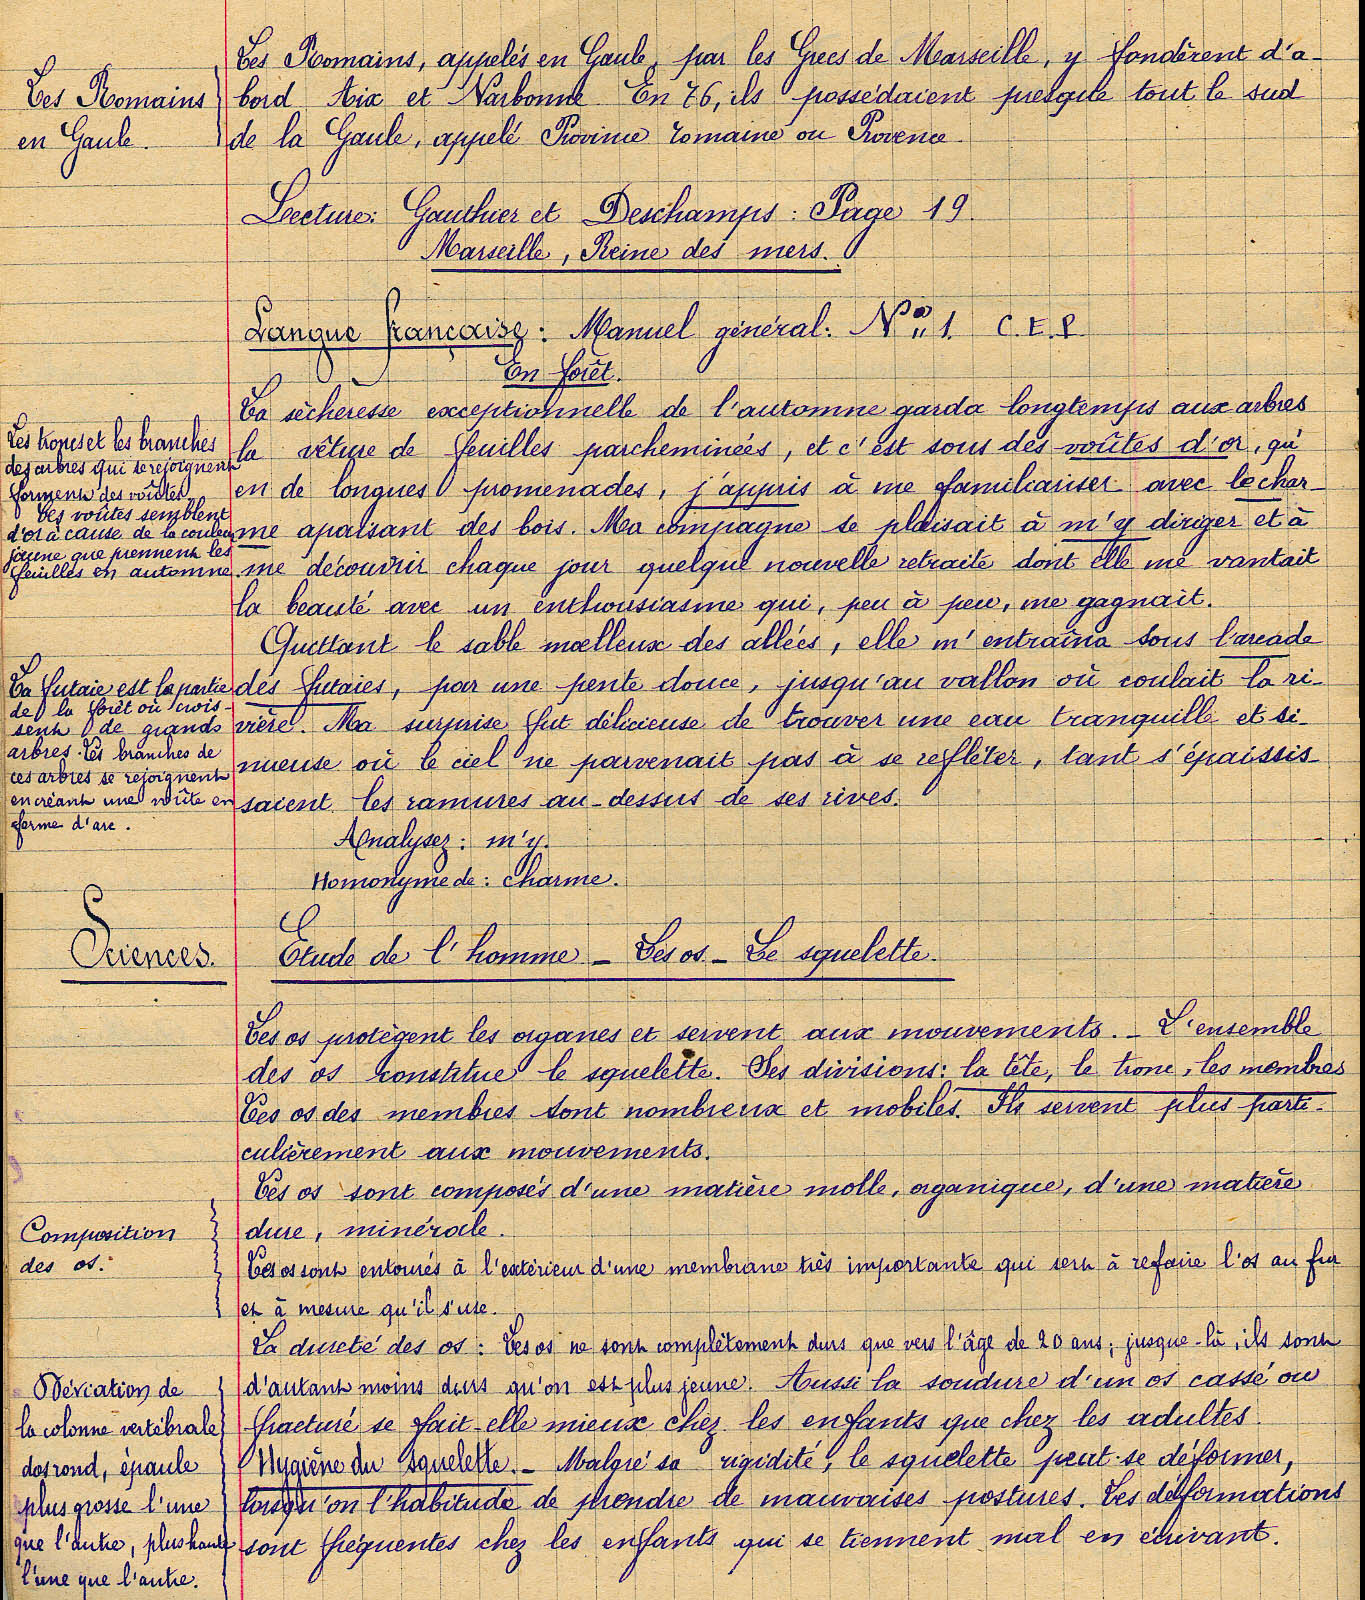 Les Romains
en Gaule.
Les Romains, appelés en Gaule, par les Grecs de Marseille, y fondèrent d'a-
bord Aix et Narbonne En 76, ils possédaient presque tout le sud
de la Gaule, appelé Province romaine ou Provence.
Lecture: Gauthier et Deschamps : Page 19.
Marseille, Reine des mers.
Langue française : Manuel général: N° 1. C.E.P.
En forêt.
La sècheresse exceptionnelle de l'automne garda longtemps aux arbres
la vêture de feuilles parcheminées, et c'est sous des voûtes d'or, qu'
en de longues promenades, j'appris à me familiariser avec le char-
me apaisant des bois. Ma compagne se plaisait à m'y diriger et à
me découvrir chaque jour quelque nouvelle retraite dont elle me vantait
la beauté avec un enthousiasme qui, peu à peu, me gagnait.
Quittant le sable mœlleux des allées, elle m'entraîna sous l'arcade
des futaies, par une pente douce, jusqu'au vallon où coulait la ri-
vière. Ma surprise fut délicieuse de trouver une eau tranquille et si-
nueuse où le ciel ne parvenait pas à se reflèter, tant s'épaissis-
saient les ramures au-dessus de ses rives.
Les troncs et les branches
des arbres qui se rejoignent
forment des voûtes
Ces voûtes semblent
d'or à cause de la couleur
jaune que prennent les
feuilles en automne.
La futaie est la partie
de la forêt où crois-
sent de grands
arbres. Les branches de
ces arbres se rejoignent
en créant une voûte en
forme d'arc.
Analysez : m'y.
Homonyme de : charme.
Sciences.
Etude de l'homme - Les os - Le squelette.
Les os protègent les organes et servent aux mouvements. - L'ensemble
des os constitue le squelette. Ses divisions: la tête, le tronc, les membres
Les os des membres sont nombreux et mobiles. Ils servent plus parti-
culièrement aux mouvements.
Les os sont composés d'une matière molle, organique, d'une matière
dure, minérale.
Composition
des os:
Les os sont entourés à l'extérieur d'une membrane très importante qui sert à refaire l'os au fur
et à mesure qu'il s'use.
La dureté des os : Les os ne sont complètement durs que vers l'âge de 20 ans; jusque-là, ils sont
d'autant moins durs qu'on est plus jeune. Aussi la soudure d'un os cassé ou
fracturé se fait-elle mieux chez les enfants que chez les adultes.
Hygiène du squelette. - Malgré sa rigidité, le squelette peut se déformer,
lorsqu'on l'habitude de prendre de mauvaises postures. Les déformations
sont fréquentes chez les enfants qui se tiennent mal en écrivant.
Déviation de
la colonne vertébrale
dos rond, épaule
plus grosse l'une
que l'autre, plus haute
l'une que l'autre.